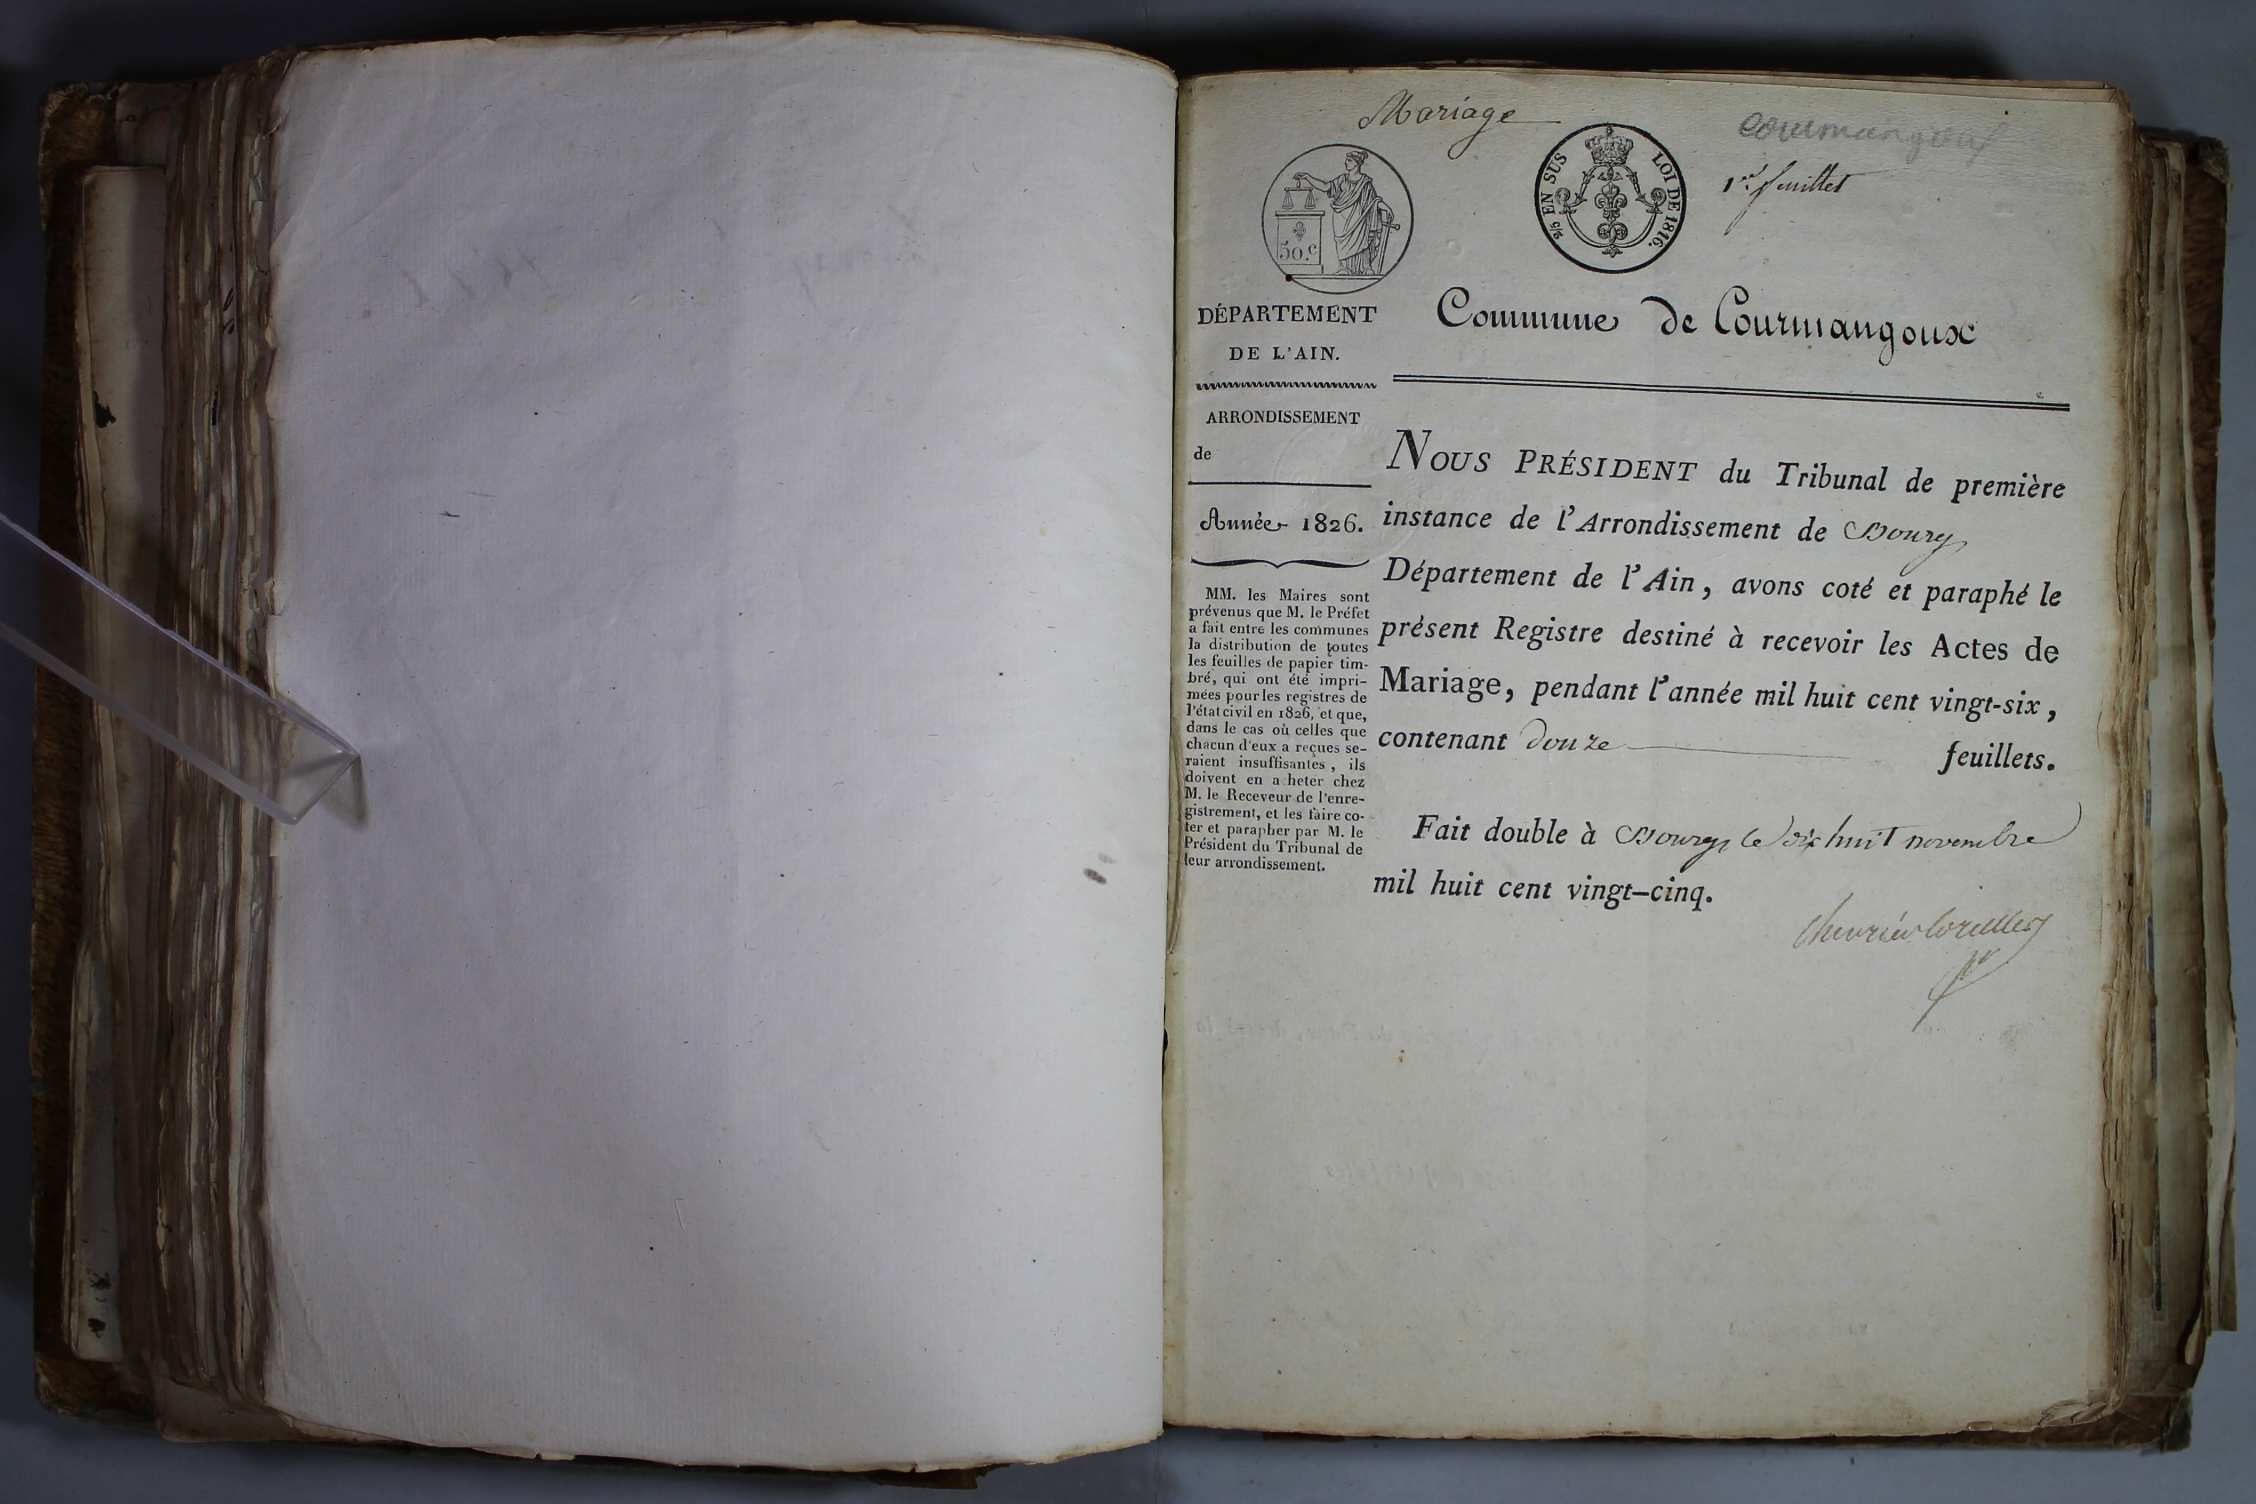 Mariage
courmangoux
1er feuillet
50.c
2/5 EN SUS
LOI DE 1816.
DÉPARTEMENT
DE L'AIN.
ARRONDISSEMENT
de
Année 1826.
MM. les Maires sont
prévenus que M. le Préfet
a fait entre les communes
la distribution de toutes
les feuilles de papier tim-
bré, qui ont été impri-
mées pour les registres de
l'état civil en 1826, et que,
dans le cas où celles que
chacun d'eux a reçues se-
raient insuffisantes, ils
doivent en a heter chez
M. le Receveur de l'enre-
gistrement, et les faire co-
ter et parapher par M. le
Président du Tribunal de
leur arrondissement.
Commune de Courmangoux
NOUS PRÉSIDENT du Tribunal de première
instance de l'Arrondissement de Bourg
Département de l'Ain, avons coté et paraphé le
présent Registre destiné à recevoir les Actes de
Mariage, pendant l'année mil huit cent vingt-six,
contenant douze feuillets.
Fait double à Bourg, le dix huit novembre
mil huit cent vingt-cinq.